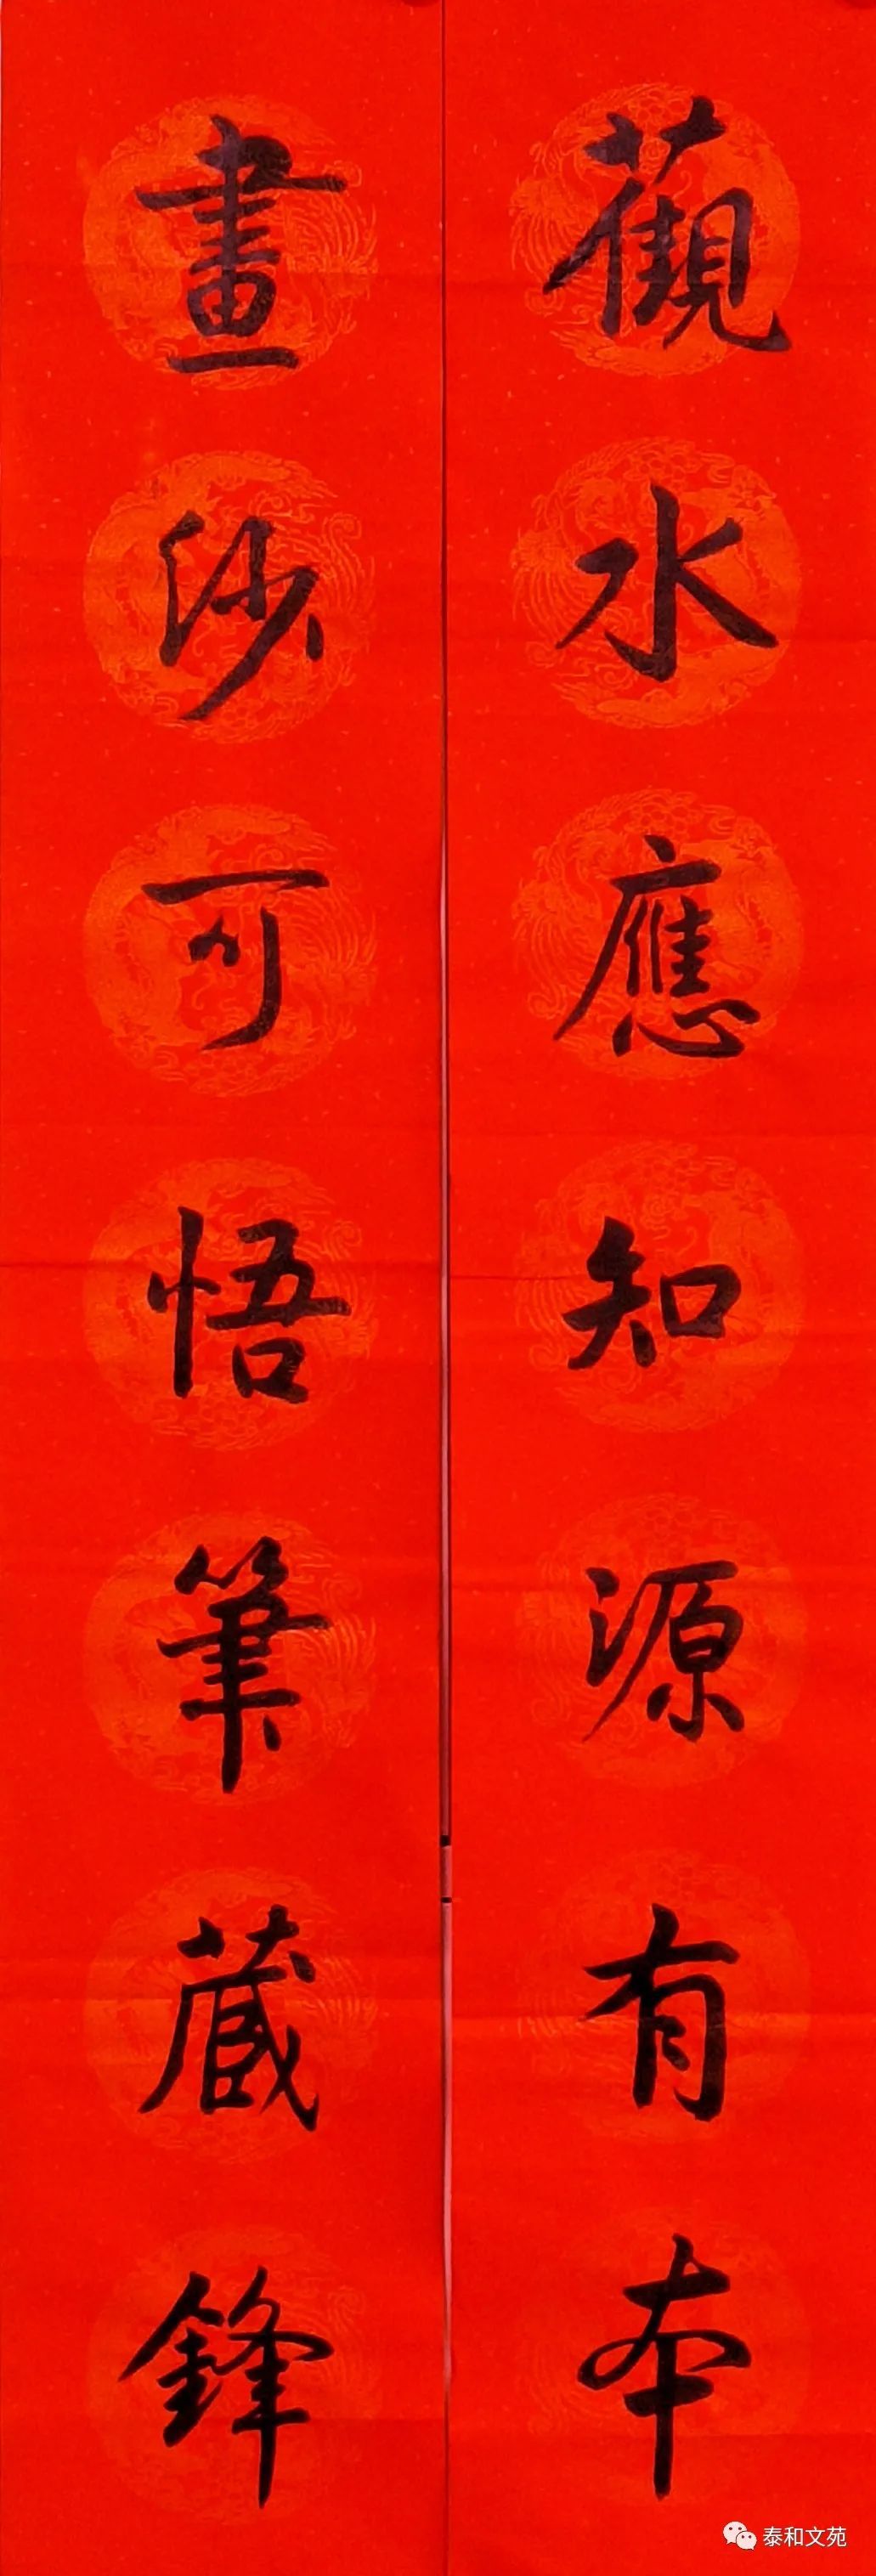 觀水應知源有本
畫沙可悟筆藏鋒
泰和文苑